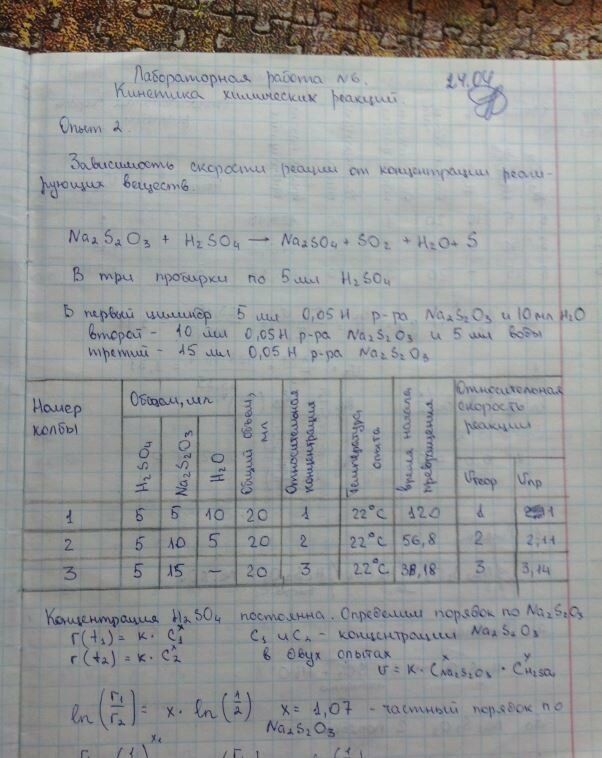 Лабораторная работа N6.
24.04
Кинетика химических реакций.
Опыт 2.
Зависимость скорости реакции от концентрации реаги-
рующих веществ.
Na₂S₂O₃ + H₂SO₄ → Na₂SO₄ + SO₂ + H₂O + S
В три пробирки по 5 мл H₂SO₄
В первый цилиндр 5 мл 0,05 Н р-ра Na₂S₂O₃ и 10 мл H₂O
второй - 10 мл 0,05 Н р-ра Na₂S₂O₃ и 5 мл воды
третий - 15 мл 0,05 Н р-ра Na₂S₂O₃
Номер колбы | Объем, мл | Общий объем, мл | Относительная концентрация | Температура опыта | время начала превращения | Относительная скорость реакции
H₂SO₄ | Na₂S₂O₃ | H₂O | Vтеор | Vпр
1 | 5 | 5 | 10 | 20 | 1 | 22°C | 120 | 1 | 1
2 | 5 | 10 | 5 | 20 | 2 | 22°C | 56,8 | 2 | 2,11
3 | 5 | 15 | — | 20 | 3 | 22°C | 38,18 | 3 | 3,14
Концентрация H₂SO₄ постоянна. Определим порядок по Na₂S₂O₃
r(t₁) = k · C₁ˣ C₁ и C₂ - концентрации Na₂S₂O₃
r(t₂) = k · C₂ˣ в двух опытах
v = k · CˣNa₂S₂O₃ · CʸH₂SO₄
ln(r₁/r₂) = x · ln(1/2) x = 1,07 - частный порядок по
Na₂S₂O₃